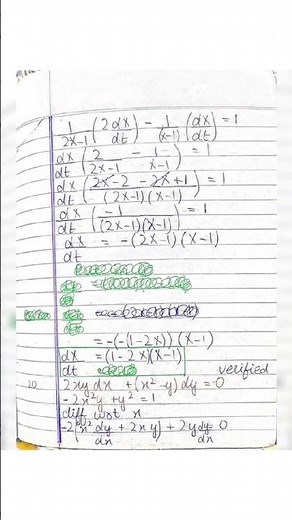 1/(2x-1) (2dx/dt) - 1/(x-1) (dx/dt) = 1
dx/dt (2/(2x-1) - 1/(x-1)) = 1
dx/dt ((2x-2 - 2x+1)/((2x-1)(x-1))) = 1
dx/dt (-1/((2x-1)(x-1))) = 1
dx/dt = -(2x-1)(x-1)
= -(-(1-2x))(x-1)
dx/dt = (1-2x)(x-1)
verified
20 2xy dx + (x²-y) dy = 0
-2x²y + y² = 1
diff wrt x
-2[x² dy/dx + 2xy] + 2y dy/dx = 0